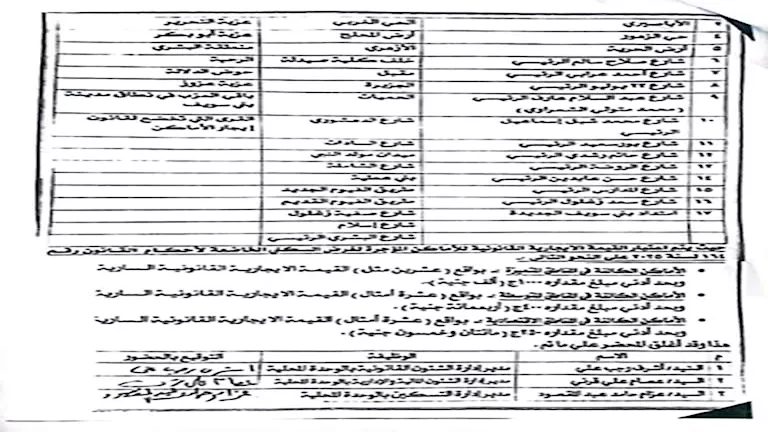 ٣ الأباصيري الحي الغربي عزبة التحرير
٤ حي الزهور أرض الملح عزبة أبو بكر
٥ أرض الحرية الأزهري منطقة البشري
٦ شارع صلاح سالم الرئيسي خلف كلية صيدلة الرحبة
٧ شارع أحمد عرابي الرئيسي مقبل حوض الدلالة
٨ شارع ٢٣ يوليو الرئيسي الجزيرة عزبة
٩ شارع عبد السلام عارف الرئيسي الحميات باقي العزب في نطاق مدينة
( محمد متولى الشعراوي ) بني سويف
١٠ شارع محمد شفيق إسماعيل شارع الدهشوري القرى التي تخضع لقانون
الرئيسي إيجار الأماكن
١١ شارع بورسعيد الرئيسي شارع السادات
١٢ شارع حاتم رشدي الرئيسي ميدان مولد النبي
١٣ شارع الروضة الرئيسي شارع
١٤ شارع حسن عابدين الرئيسي بني عطية
١٥ شارع المدارس الرئيسي طريق الفيوم الجديد
١٦ شارع سعد زغلول الرئيسي طريق الفيوم القديم
١٧ امتداد بني سويف الجديدة شارع صفية زغلول
شارع إسلام
شارع البشري الرئيسي
حيث يتم اعتبار القيمة الايجارية القانونية للأماكن المؤجرة لغرض السكني الخاضعة لأحكام القانون رقم
١٦٤ لسنة ٢٠٢٥ على النحو التالي :-
• الأماكن الكائنة في المناطق المتميزة :- بواقع ( عشرين مثل ) القيمة الايجارية القانونية السارية
وبحد أدني مبلغ مقداره ١٠٠٠ج ( ألف جنية ) .
• الأماكن الكائنة في المناطق المتوسطة :- بواقع ( عشرة أمثال ) القيمة الايجارية القانونية السارية
وبحد أدني مبلغ مقداره ٤٠٠ج ( أربعمائة جنية ) .
• الأماكن الكائنة في المناطق الاقتصادية :- بواقع ( عشرة أمثال ) القيمة الايجارية القانونية السارية
وبحد أدني مبلغ مقداره ٢٥٠ج ( مائتان وخمسون جنية ) .
هذا وقد أغلق المحضر علي ما تم .
م الاسم الوظيفة التوقيع بالحضور
١ السيد/ أشرف رجب علي مدير إدارة الشئون القانونية بالوحدة المحلية
٢ السيد/ عصام علي قرني مدير إدارة الشئون المالية والإدارية بالوحدة المحلية
٣ السيد/ عزام حامد عبد المقصود مدير إدارة التسكين بالوحدة المحلية